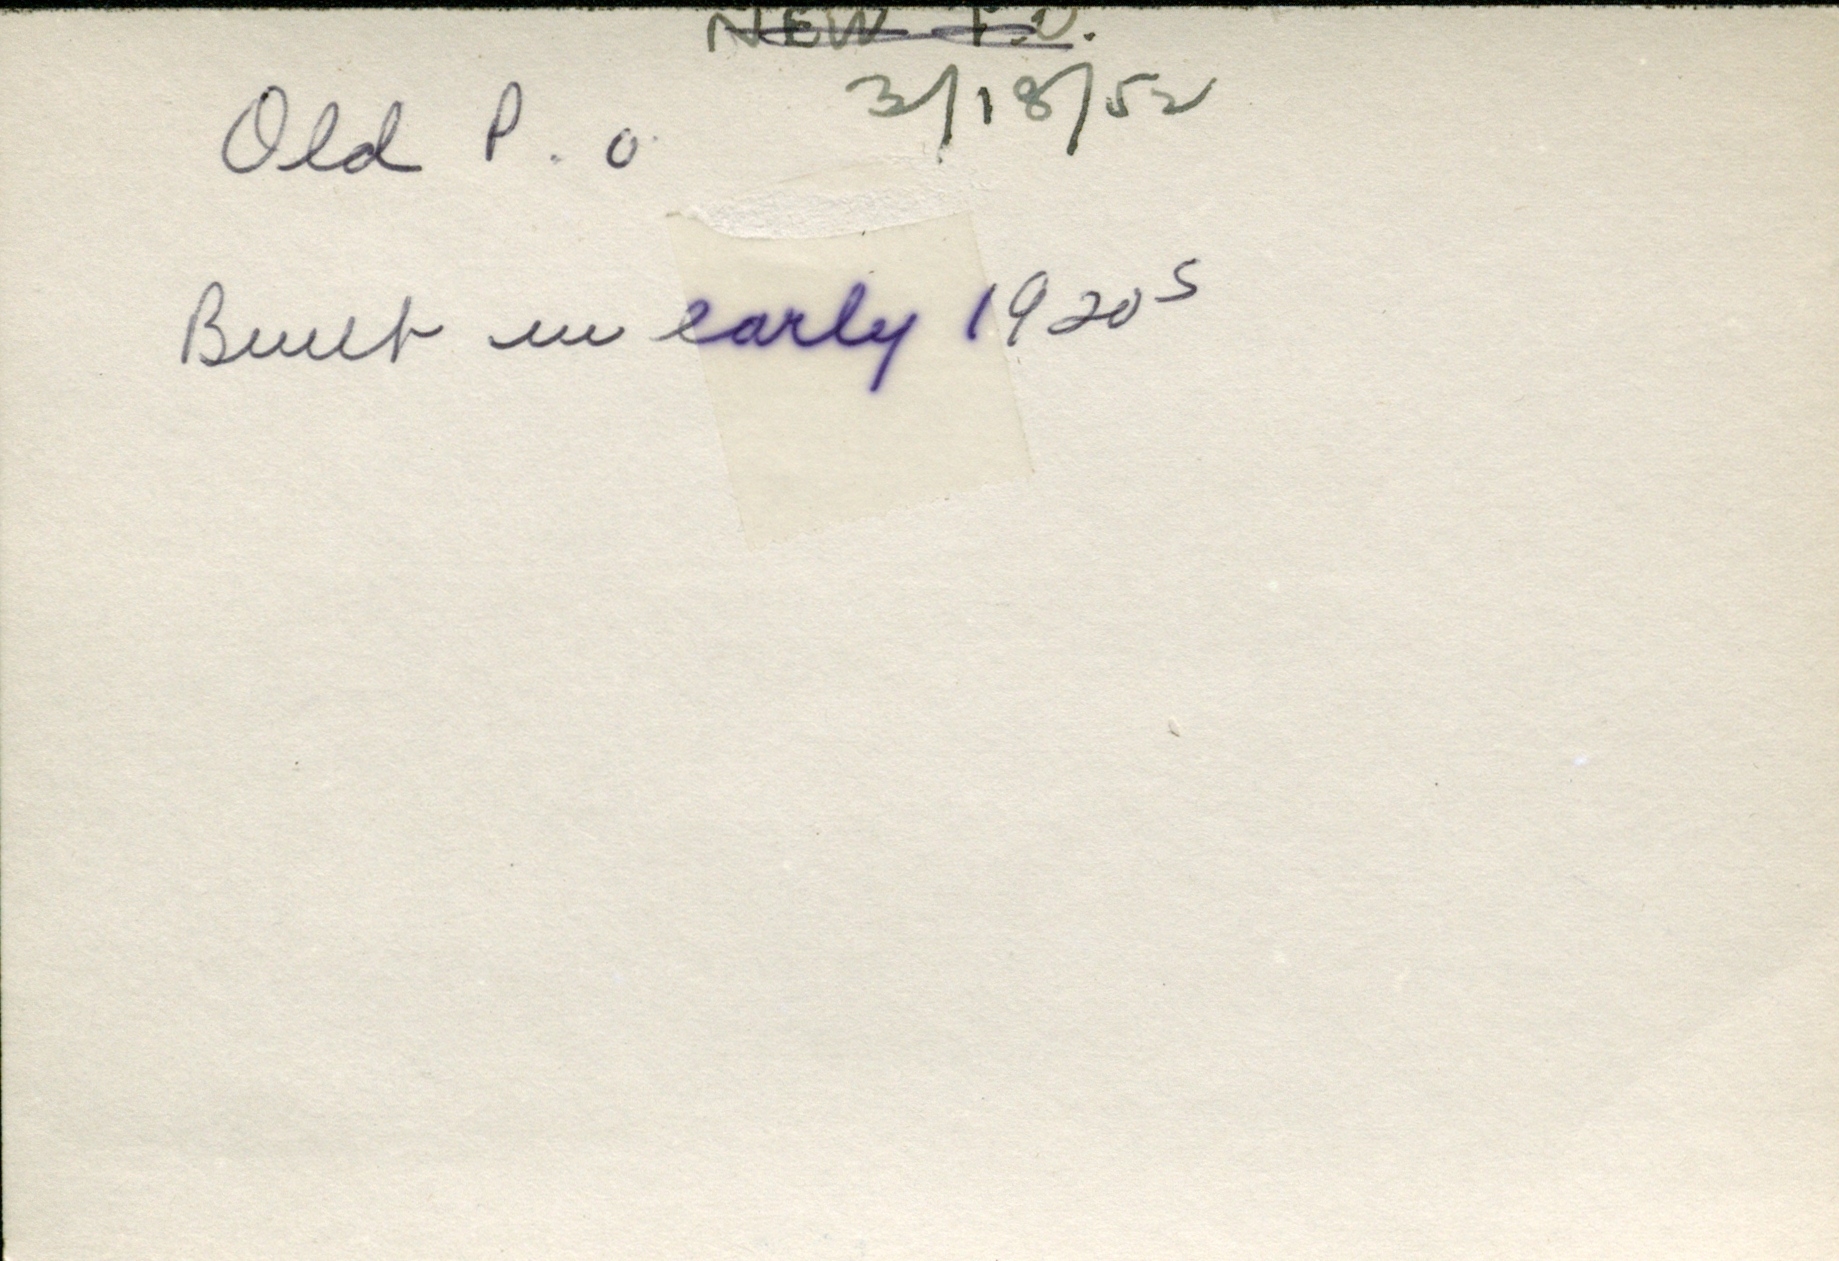 NEW P.O.
3/18/52
Old P.o.
Built in early 1920s